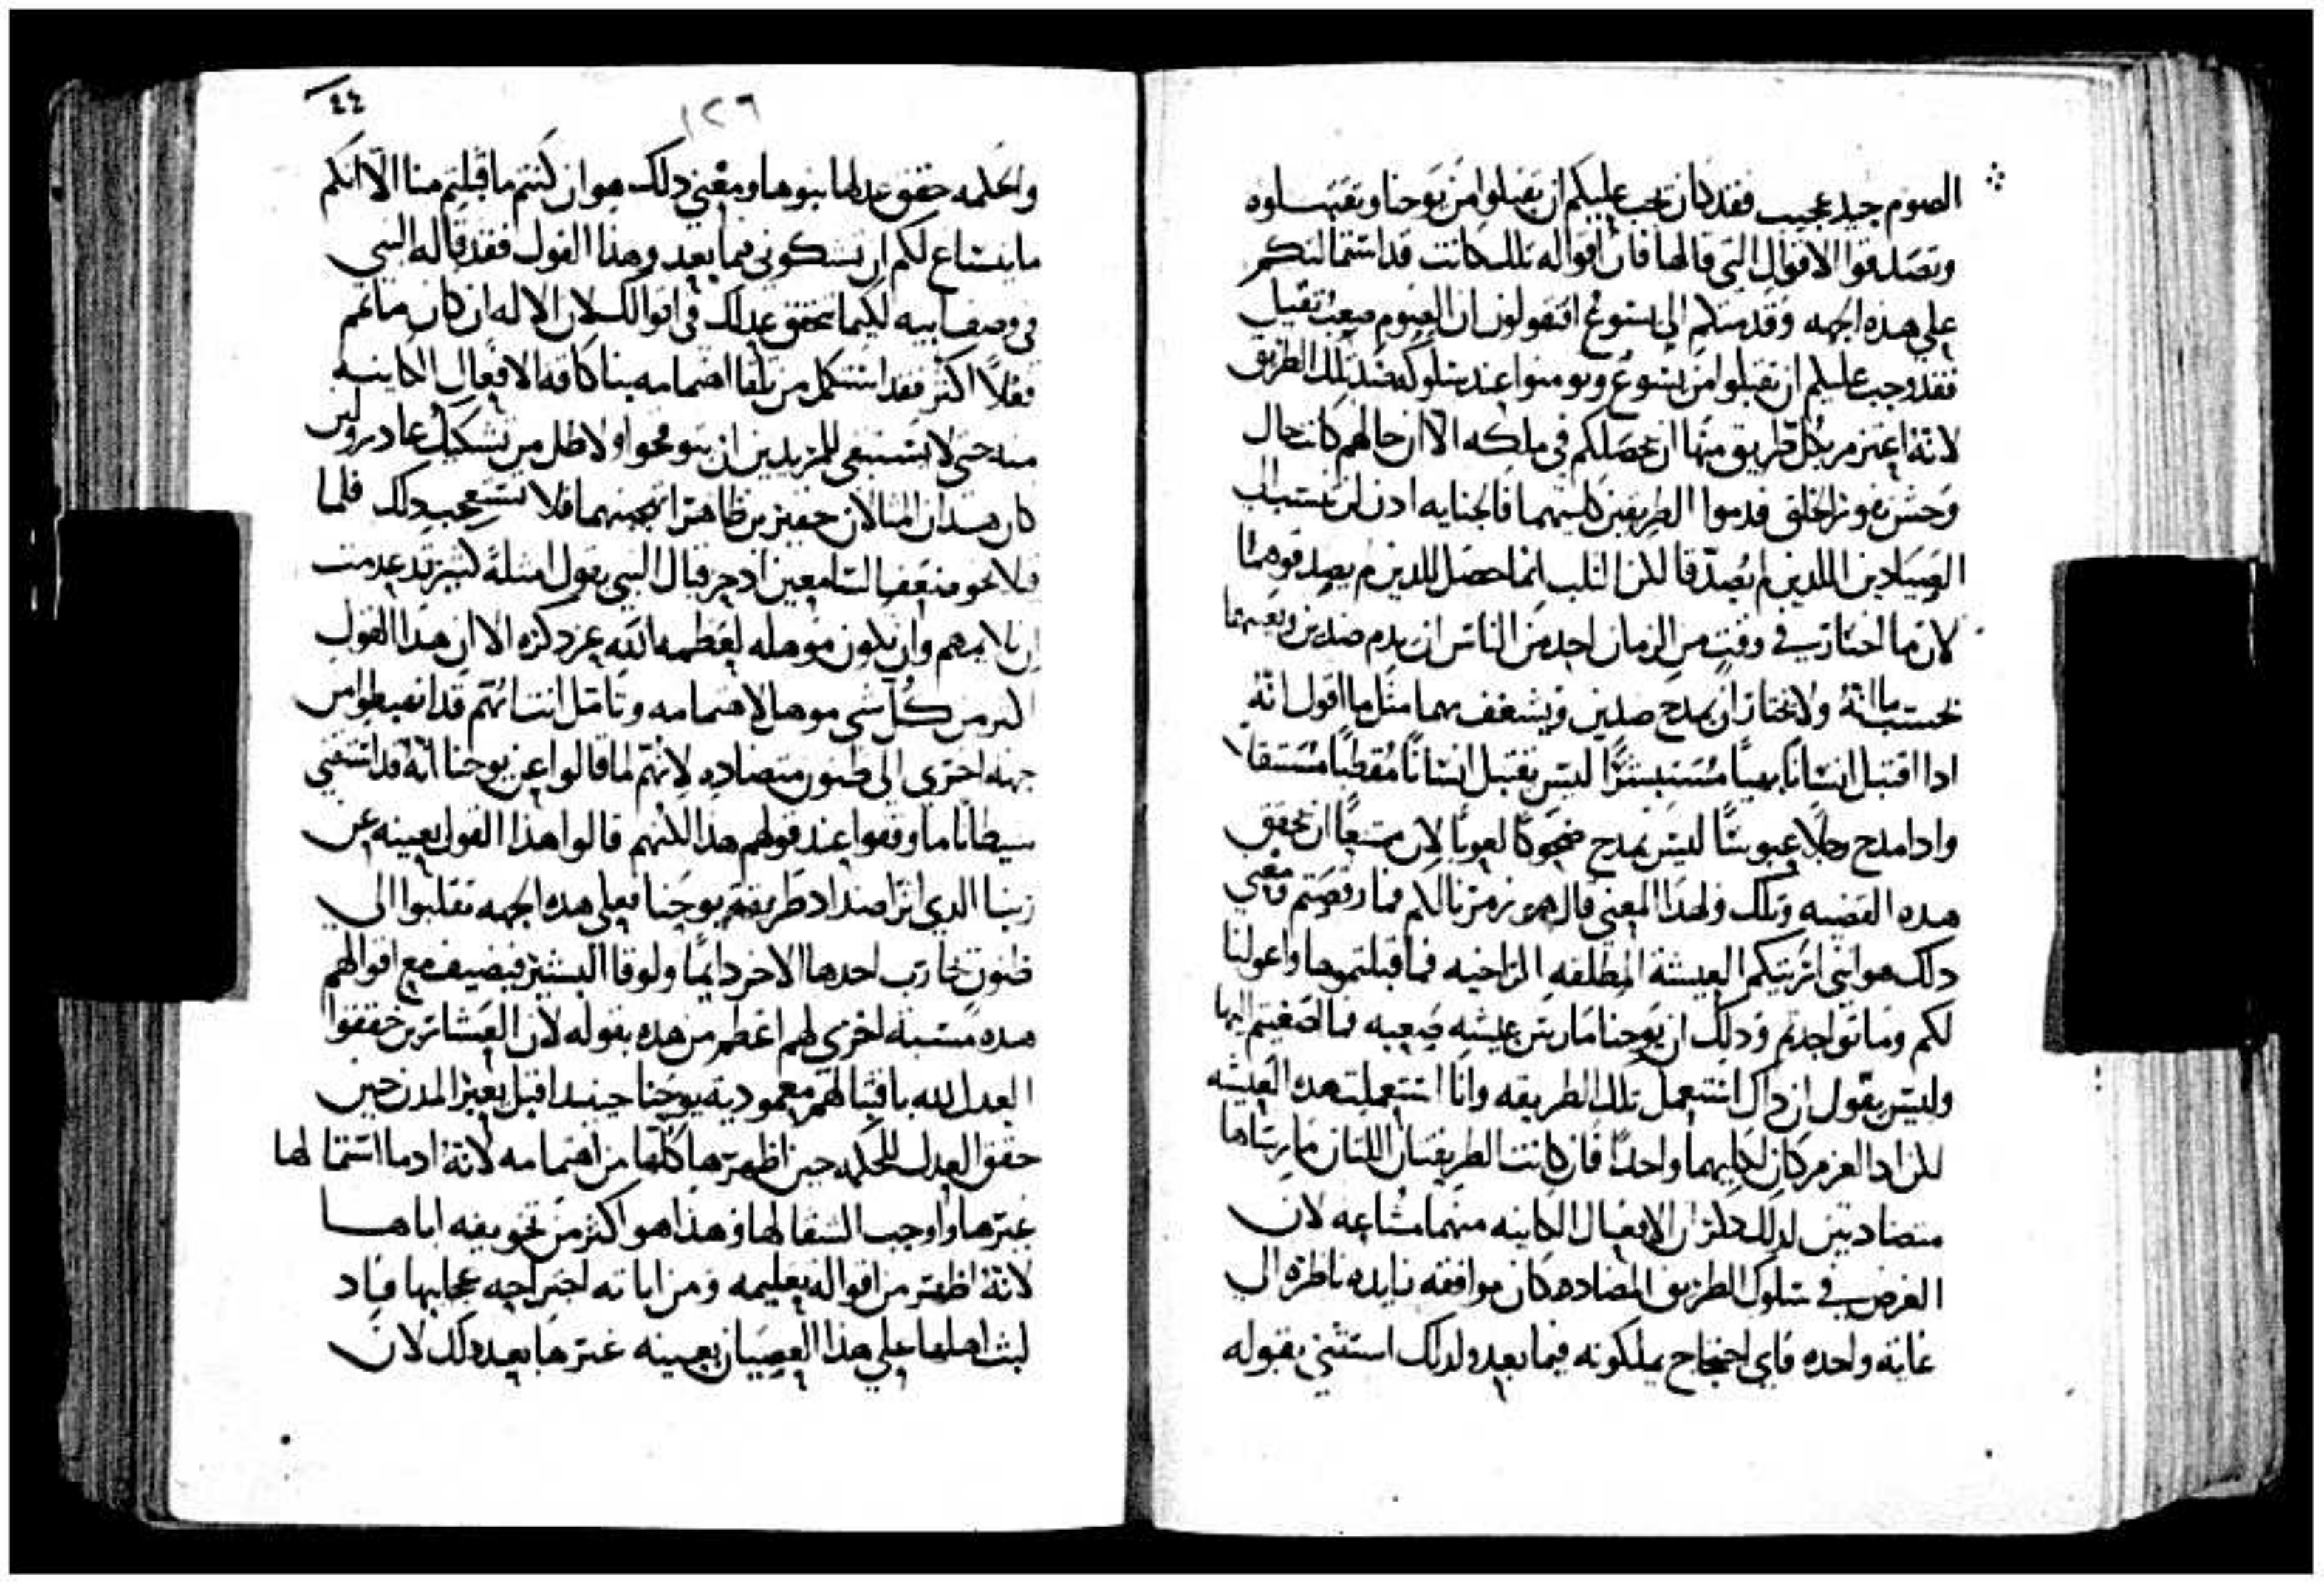 الصوم جيد عجيب فقد كان يجب عليكم ان تقبلوا من يوحنا وتقتبلوه
وتصدقوا الاقوال التي قالها فان اقواله تلك كانت قد استمالتكم
علي هذه الجهه وقدمتكم الي يسوع افتقولون ان الصوم صعب ثقيل
فقد وجب عليكم ان تقبلوا من يسوع وتومنوا عند سلوكه ضد تلك الطريق
لانه اعتزم بكل طريق منها ان يحصلكم في ملكه الا ان حالهم كانت حال
وحش نفور الخلق فدموا الطريقين كلتيهما فالجنايه ادن لن تستبالب
الصيادين اللدين لم يصدقا لكن الثلب انما حصل للدين لم يصدقوهما
لان ما اختار في وقت من الزمان احد من الناس ان يدم ضدين وبعينهما
يحسب ما انه ولا يختار ان يمدح ضدين ويشغف بهما مثل ما اقول انه
ادا اقتبل انسانا بهيا مستبشرا ليس يقتبل انسانا مقطبا مستقلا
وادا مدح رجلا عبوسا ليس يمدح ضحوكا لعوبا لان ممتنعا ان تحقق
هده القضيه وتلك ولهدا المعني قال هو زمرنا لكم فما رقصتم ومعني
دلك هو انني اريتكم العيشة المطلقه المتراخيه فما قبلتموها واعولنا
لكم وما تواجدتم ودلك ان يوحنا مارس عيشه صعبه فما اصغيتم اليها
وليس يقول ان داك استعمل تلك الطريقه وانا استعملت هده العيشه
لكن ادا العزم كان لكليهما واحدا فان كانت الطريقتان اللتان مارستاها
متضادتين لدلك دكر ان الافعال الكاينه منهما مشاعه لان
الغرض في سلوك الطريق المضاده كان موافقه زايده ناظره الي
غايه واحده فاي احتجاج يملكونه فيما بعد ولدلك استثني بقوله
٤٤
١٢٦
والحكمه حقق عدلها بنوها ومعني دلك هو ان كنتم ما قبلتم منا الا انكم
ما ينساغ لكم ان تشكوني فيما بعد وهذا القول فقد قاله النبي
في وصف ابيه لكيما تحقق عدلك في اقوالك لان الاله ان كان ما تمم
فعلا اكثر فقد استكمل من تلقا اهتمامه بنا كافه الافعال الكاينه
منه حتي لا يستبقي للمزيدين ان يتوقحوا ولا ظل من تشكيك عادم ولين
كان هدان المثالان حقيرين ظاهرا تهجينهما فلا تستعجب دلك فلما
فلانحو منعفا السامعين ادحزقيال النبي يقول امثلة كثيره قد عدمت
ان تلايمهم وان يكون موهله لعظمه الله عز دكره الا ان هدا القول
اكثر من كل شي موهل لاهتمامه وتامل انت انهم قد انضبطوا من
جهه اخري الي ظنون متضاده لانهم لما قالوا عن يوحنا انه قد استقني
سيطانا ما وقفوا عند قولهم هدا لكنهم قالوا هذا القول بعينه عن
ربنا الدي اثر اضداد طريقة يوحنا فعلي هده الجهه تقلبوا الي
ظنون تحارب احدها الاخر دايما ولوقا البشير فيضيف مع اقوالهم
هده مسبة اخري لهم اعظم من هده بقوله لان العشارين حققوا
العدل لله باقتبالهم معمودية يوحنا حينيد اقبل يعير المدن حين
حقق العدل للحكمه حين اظهرها كلها من اهتمامه لانه ادما استمالها
عيرها واوجب الشقا لها وهذا هو اكثر من تخويفه اياها
لانه اظهر من اقواله تعليمه ومن اياته اجتراحه عجايبها فاد
لبث اهلها علي هذا العصيان بعينه عيرها بعد دلك لان